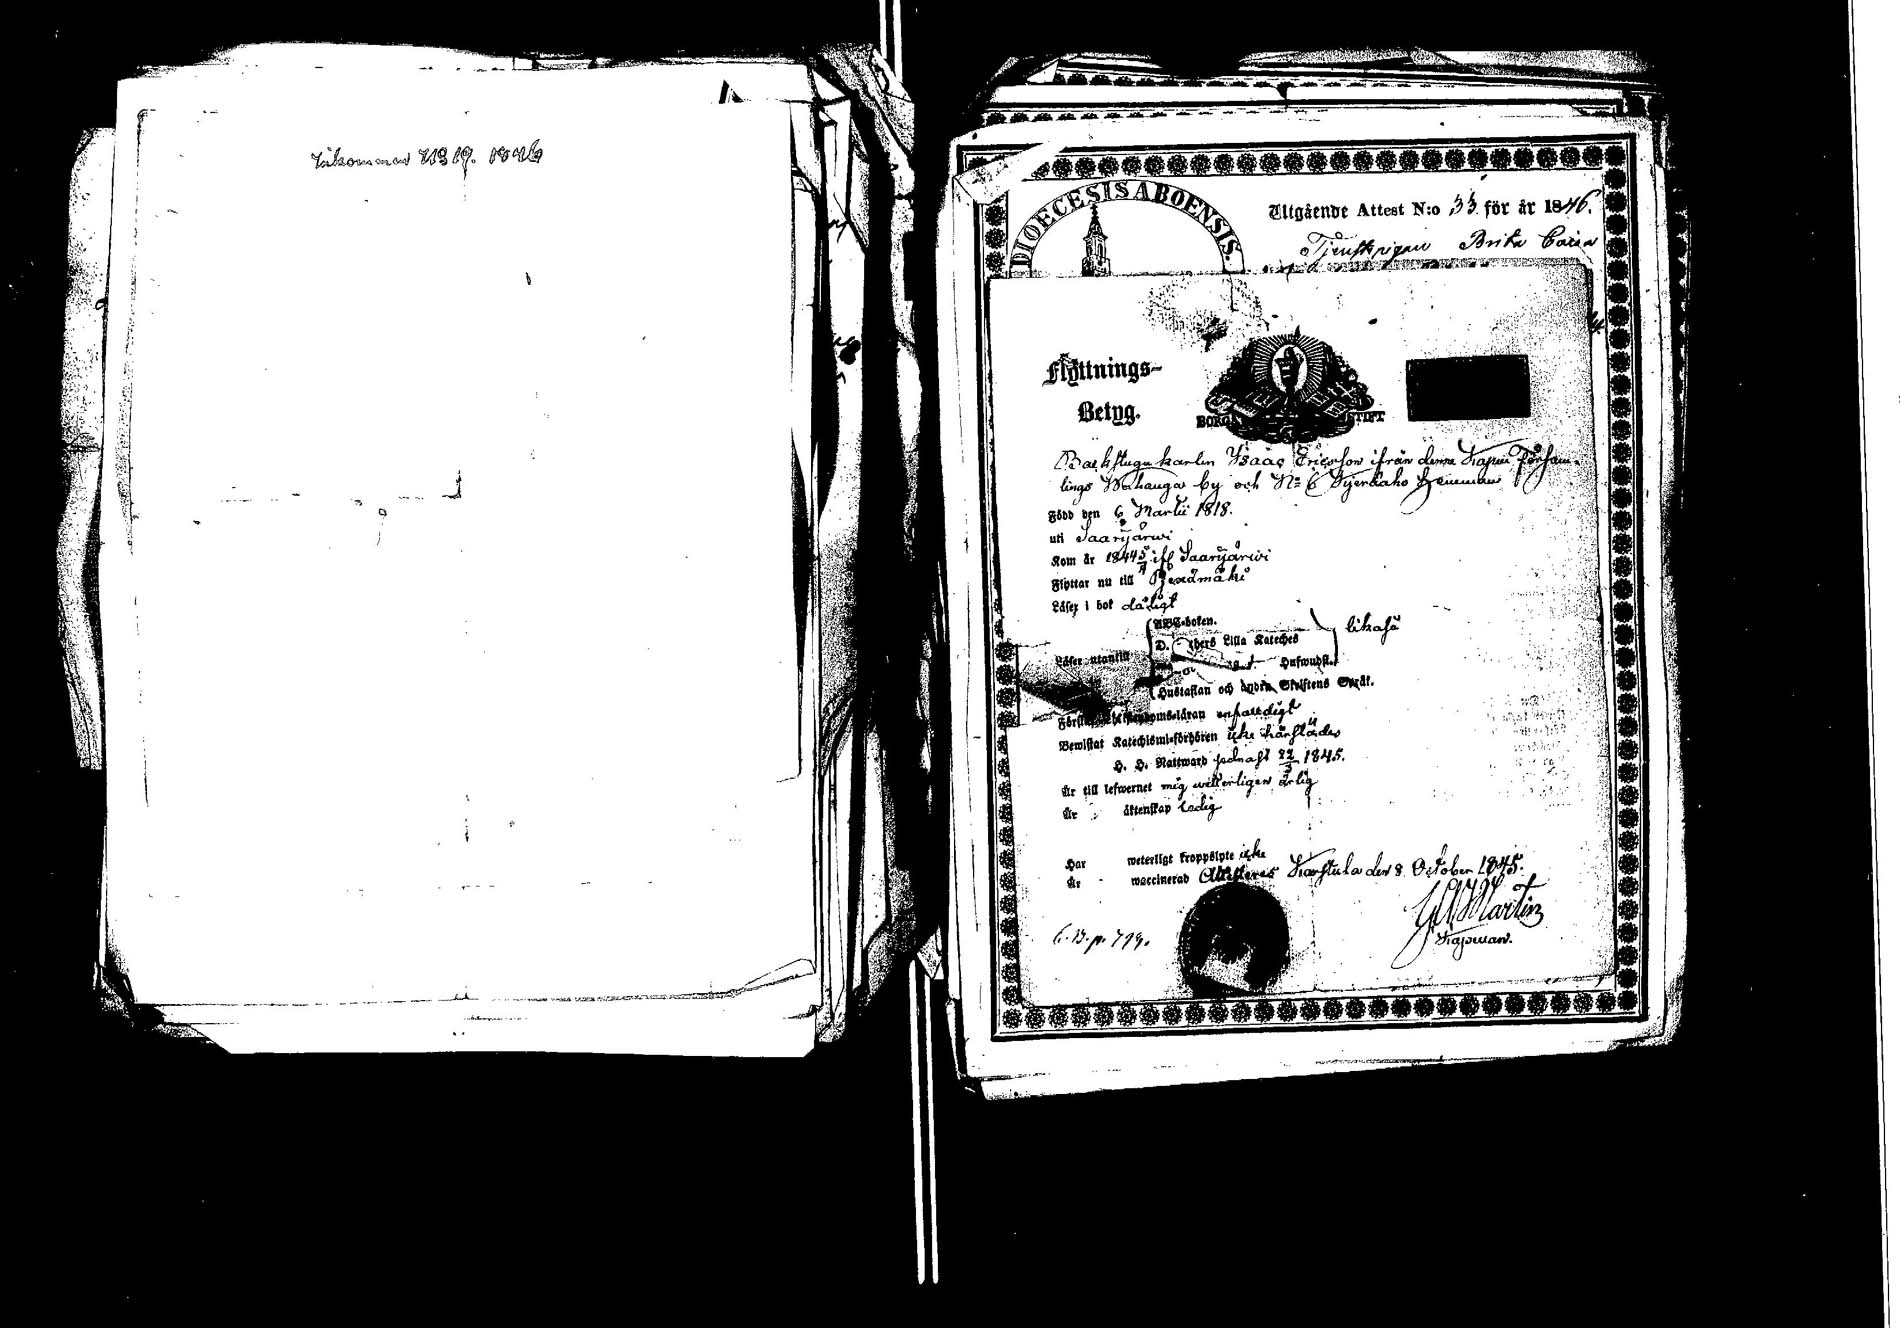 Inkommer N3 19. 1846
DIOECESIS ABOENSIS.
Utgående Attest N:o 33 för år 1846.
Tjenstpigan Brita Caisa
Flyttnings-
Betyg.
BORGÅ STIFT
Backstugukarlen Isaac Ericsson ifrån denna Kapell Försam-
lings Wahanga by och N:o 6 hemman
Född den 6 Martii 1818.
uti Saarijärwi
Kom år 1844 5/4 if. Saarijärwi
Flyttar nu till
Läser i bok dåligt
ABC-boken.
D. Lilla Kateches
likaså
Läser utantill
Hufwudst.
Hustaflan och andra Skriftens Språk.
Förstår Christendoms-läran
Bewistat Katechismi-förhören icke härstädes
H. H. Nattward sednast 22/3 1845.
Är till lefwernet mig wetterligen ärlig
Är äktenskap ledig
Har weterligt kroppslyte icke
Är waccinerad Attesteras Karstula den 8 October 1845.
Martin
Kapellan.
C. B. p. 799.